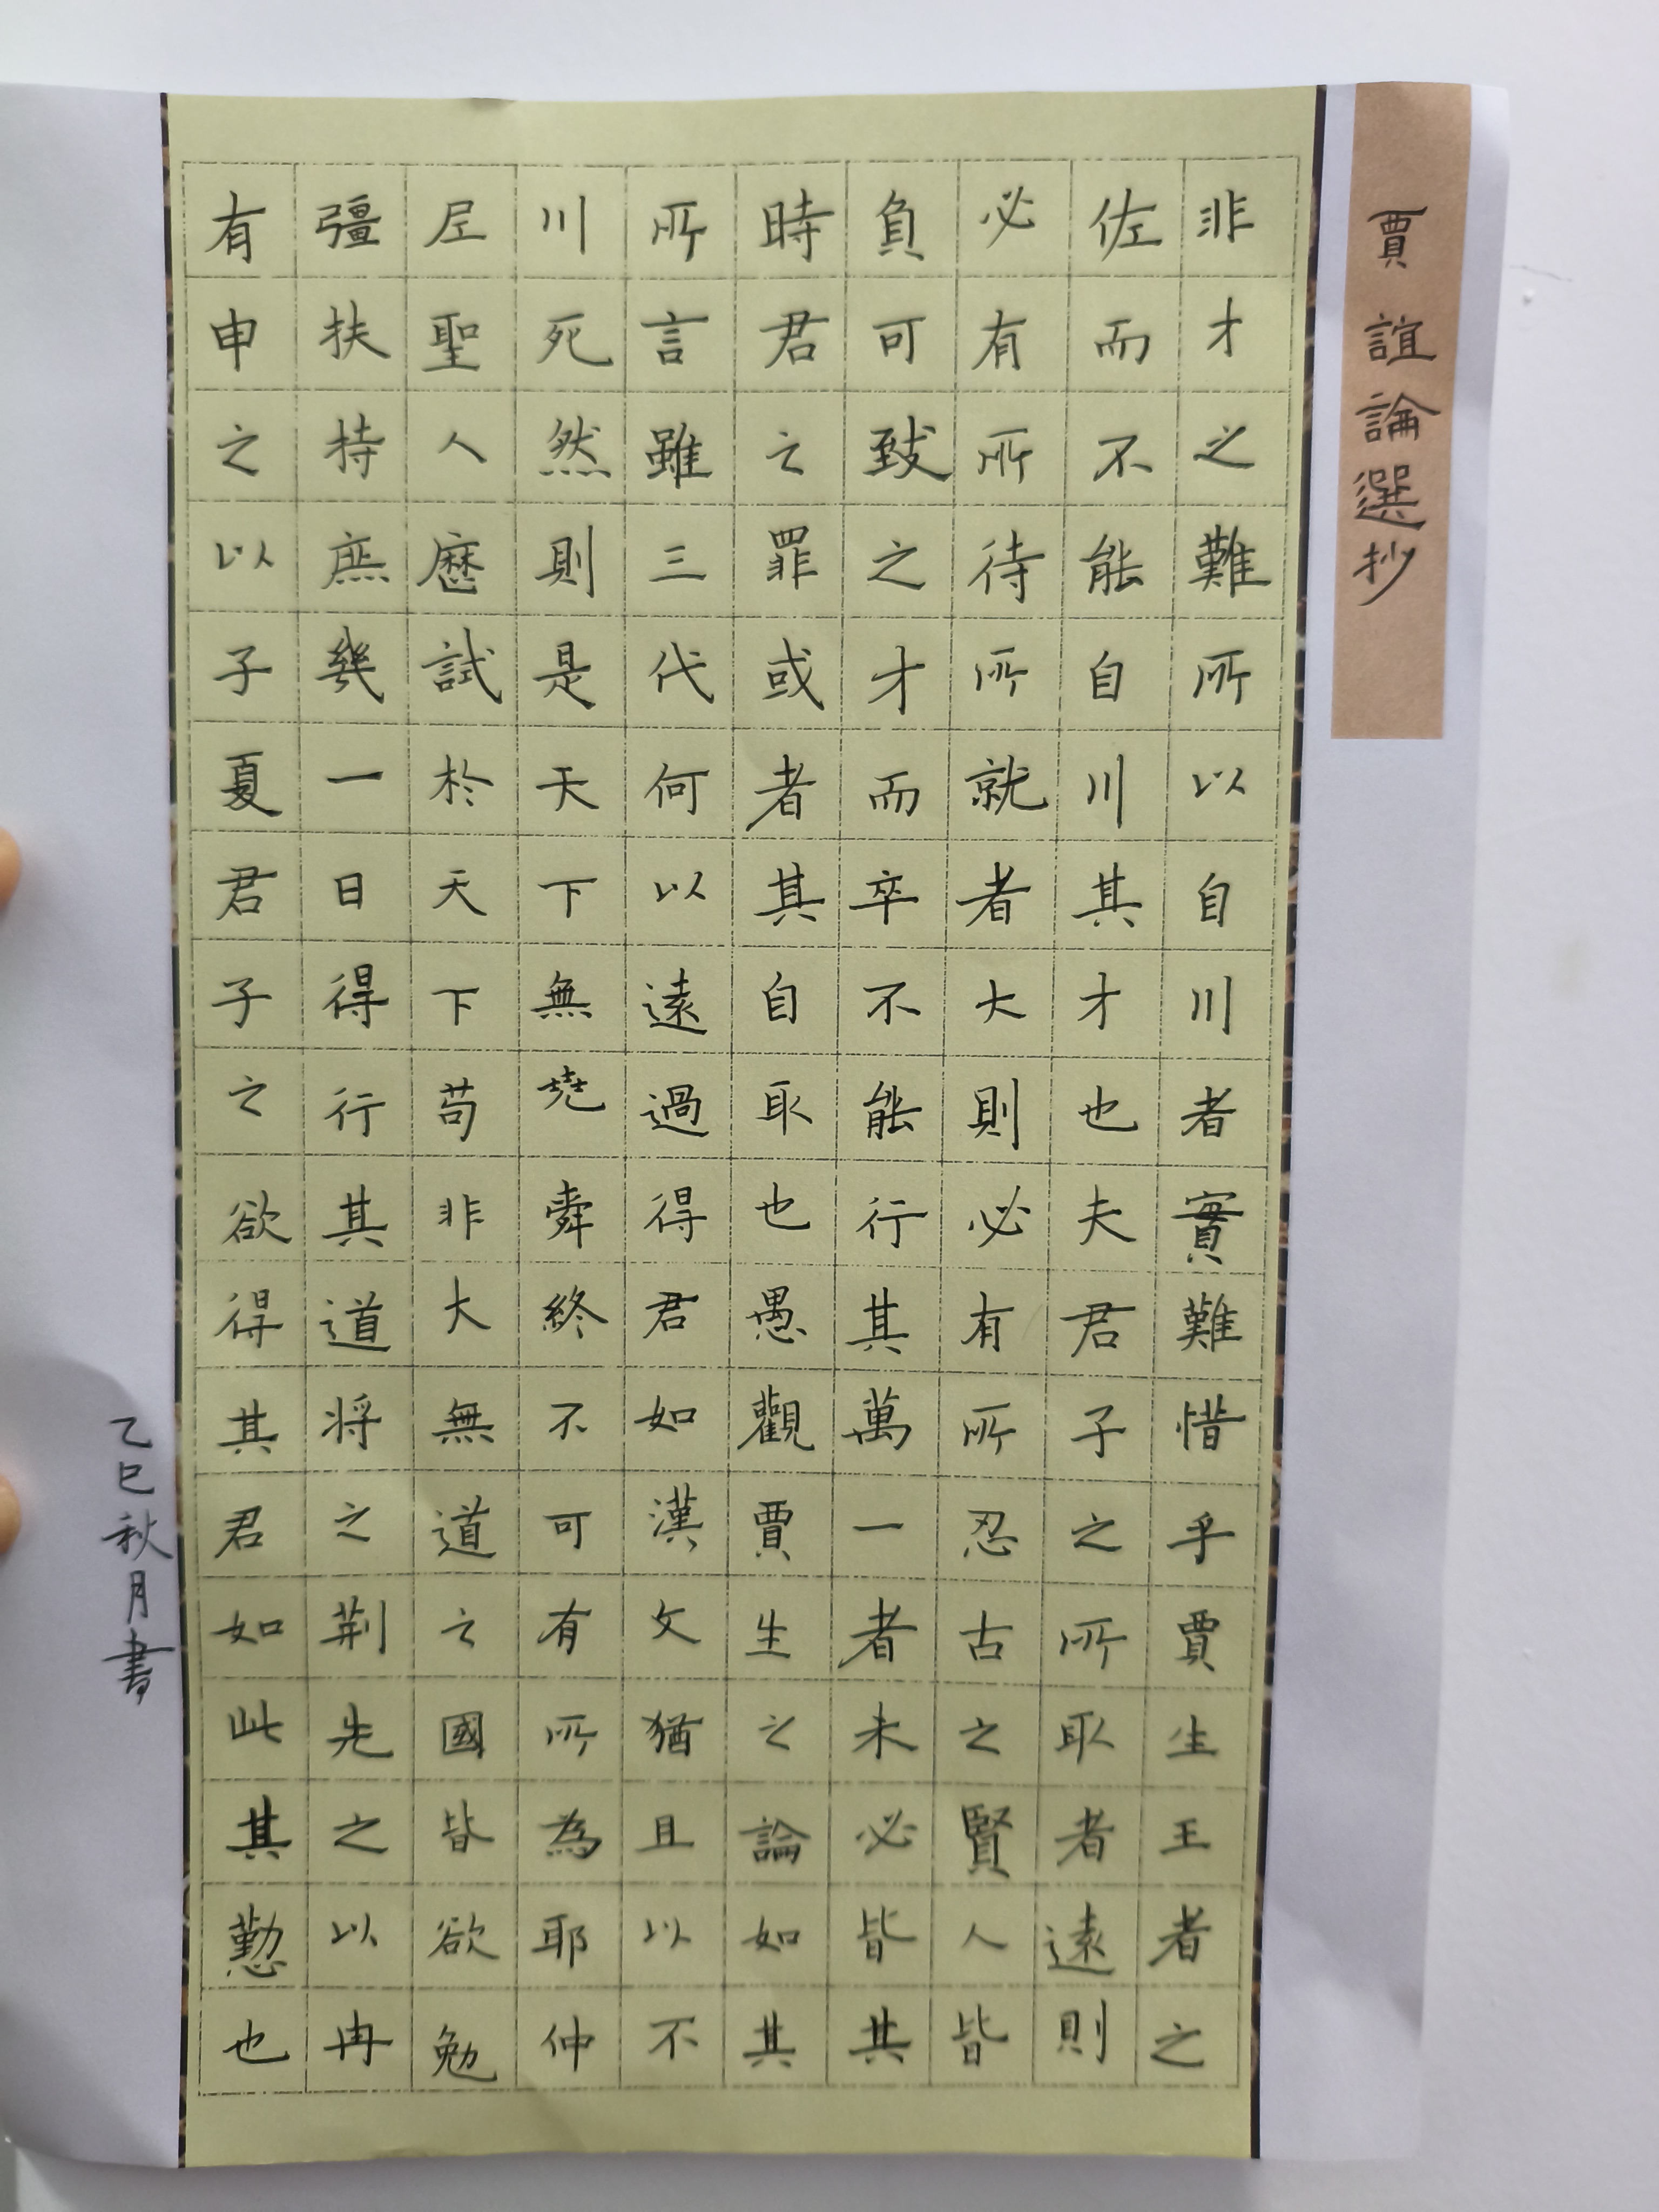 賈誼論選抄
非才之難所以自川者實難惜乎賈生王者之
佐而不能自川其才也夫君子之所取者遠則
必有所待所就者大則必有所忍古之賢人皆
負可致之才而卒不能行其萬一者未必皆其
時君之罪或者其自取也愚觀賈生之論如其
所言雖三代何以遠過得君如漢文猶且以不
川死然則是天下無堯舜終不可有所為耶仲
尼聖人歷試於天下苟非大無道之國皆欲勉
彊扶持庶幾一日得行其道將之荆先之以冉
有申之以子夏君子之欲得其君如此其懃也
乙巳秋月書